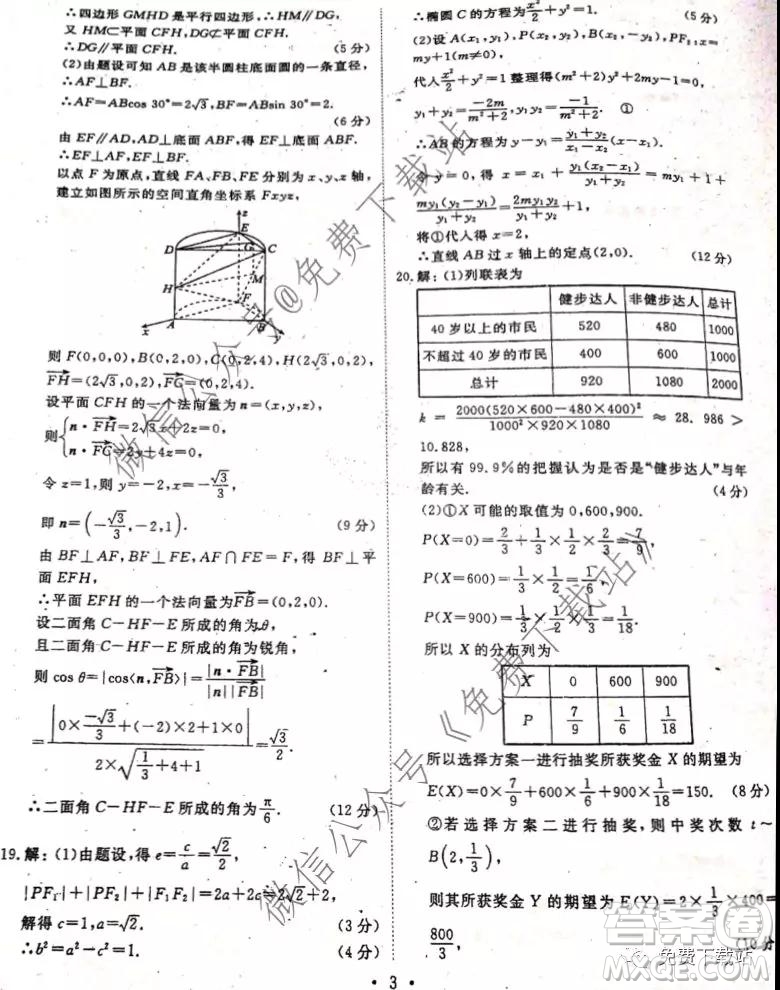 ∴四边形 GMHD 是平行四边形,∴HM∥DG,
又 HM⊂平面 CFH,DG⊄平面 CFH.
∴DG∥平面 CFH. (5 分)
(2)由题设可知 AB 是该半圆柱底面圆的一条直径,
∴AF⊥BF.
∴AF=ABcos 30°=2√3,BF=ABsin 30°=2.
(6 分)
由 EF∥AD,AD⊥底面 ABF,得 EF⊥底面 ABF.
∴EF⊥AF,EF⊥BF.
以点 F 为原点,直线 FA、FB、FE 分别为 x、y、z 轴,
建立如图所示的空间直角坐标系 Fxyz,
z
E
D G C
M
H
F
A B
x y
则 F(0,0,0),B(0,2,0),C(0,2,4),H(2√3,0,2),
FH=(2√3,0,2),FC=(0,2,4).
设平面 CFH 的一个法向量为 n=(x,y,z),
则{n·FH=2√3x+2z=0,
n·FC=2y+4z=0,
令 z=1,则 y=-2,x=-√3/3,
即 n=(-√3/3,-2,1). (9 分)
由 BF⊥AF,BF⊥FE,AF∩FE=F,得 BF⊥平
面 EFH,
∴平面 EFH 的一个法向量为FB=(0,2,0).
设二面角 C-HF-E 所成的角为θ,
且二面角 C-HF-E 所成的角为锐角,
则 cos θ=|cos⟨n,FB⟩|=|n·FB|/|n||FB|
=|0×-√3/3+(-2)×2+1×0|/2×√(1/3+4+1)=√3/2.
∴二面角 C-HF-E 所成的角为π/6. (12 分)
19.解:(1)由题设,得 e=c/a=√2/2,
|PF₁|+|PF₂|+|F₁F₂|=2a+2c=2√2+2,
解得 c=1,a=√2. (3 分)
∴b²=a²-c²=1. (4 分)
∴椭圆 C 的方程为x²/2+y²=1. (5 分)
(2)设 A(x₁,y₁),P(x₂,y₂),B(x₂,-y₂),PF₂:x=
my+1(m≠0),
代入x²/2+y²=1 整理得(m²+2)y²+2my-1=0,
y₁+y₂=-2m/m²+2,y₁y₂=-1/m²+2. ①
∴AB 的方程为 y-y₁=y₁+y₂/x₁-x₂(x-x₁)
令 y=0,得 x=x₁+y₁(x₂-x₁)/y₁+y₂=my₁+1+
my₁(y₂-y₁)/y₁+y₂=2my₁y₂/y₁+y₂+1,
将①代入得 x=2,
∴直线 AB 过 x 轴上的定点(2,0). (12 分)
20.解:(1)列联表为
健步达人 非健步达人 总计
40 岁以上的市民 520 480 1000
不超过 40 岁的市民 400 600 1000
总计 920 1080 2000
k=2000(520×600-480×400)²/1000²×920×1080≈28.986>
10.828,
所以有 99.9%的把握认为是否是“健步达人”与年
龄有关. (4 分)
(2)①X 可能的取值为 0,600,900.
P(X=0)=2/3+1/3×1/3=7/9,
P(X=600)=1/3×1/2=1/6,
P(X=900)=1/3×1/2×1/3=1/18.
所以 X 的分布列为
X 0 600 900
P 7/9 1/6 1/18
所以选择方案一进行抽奖所获奖金 X 的期望为
E(X)=0×7/9+600×1/6+900×1/18=150. (8 分)
②若选择方案二进行抽奖,则中奖次数 t~
B(2,1/3),
则其所获奖金 Y 的期望为 E(Y)=2×1/3×400=
800/3, (10 分
· 3 ·
微信公众号@免费下载站
微信公众号《免费下载站》
答案圈
免费下载站